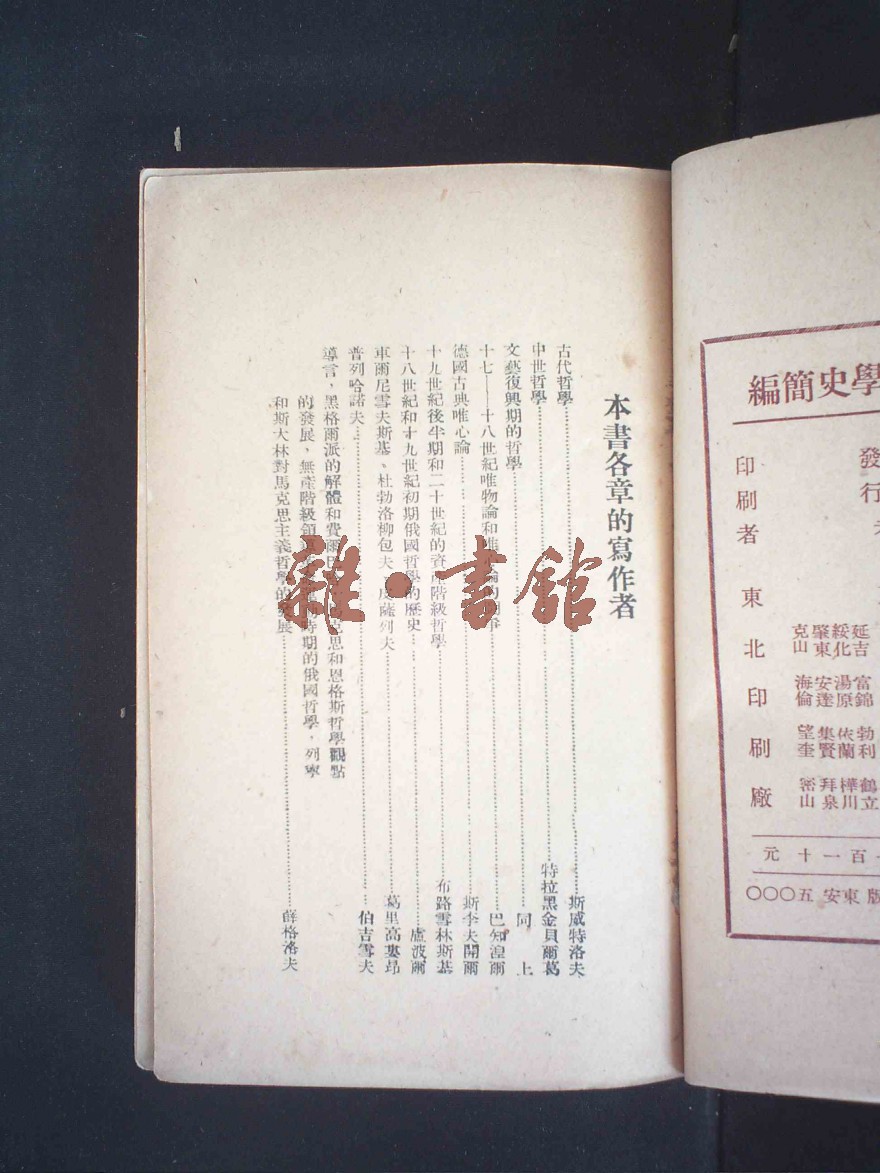 本書各章的寫作者
古代哲學……斯威特洛夫
中世哲學……特拉黑金貝爾葛
文藝復興期的哲學……同上
十七——十八世紀唯物論和唯心論的鬥爭……巴知湼爾
德國古典唯心論……斯李夫開爾
十九世紀後半期和二十世紀的資產階級哲學……布路雪林斯基
十八世紀和十九世紀初期俄國哲學的歷史……盧波爾
車爾尼雪夫斯基、杜勃洛柳包夫、皮薩列夫……葛里高婁昂
普列哈諾夫……伯吉雪夫
導言，黑格爾派的解體和費爾巴 克思和恩格斯哲學觀點
的發展，無產階級領 時期的俄國哲學，列寧
和斯大林對馬克思主義哲學的發展……薛格洛夫
雜·書館
學史簡編
發行
印刷者 東北印刷廠
延吉 綏化 肇東 克山
富錦 湯原 安達 海倫
勃利 依蘭 集賢 望奎
鶴立 樺川 拜泉 密山
百一十元
版東安五〇〇〇